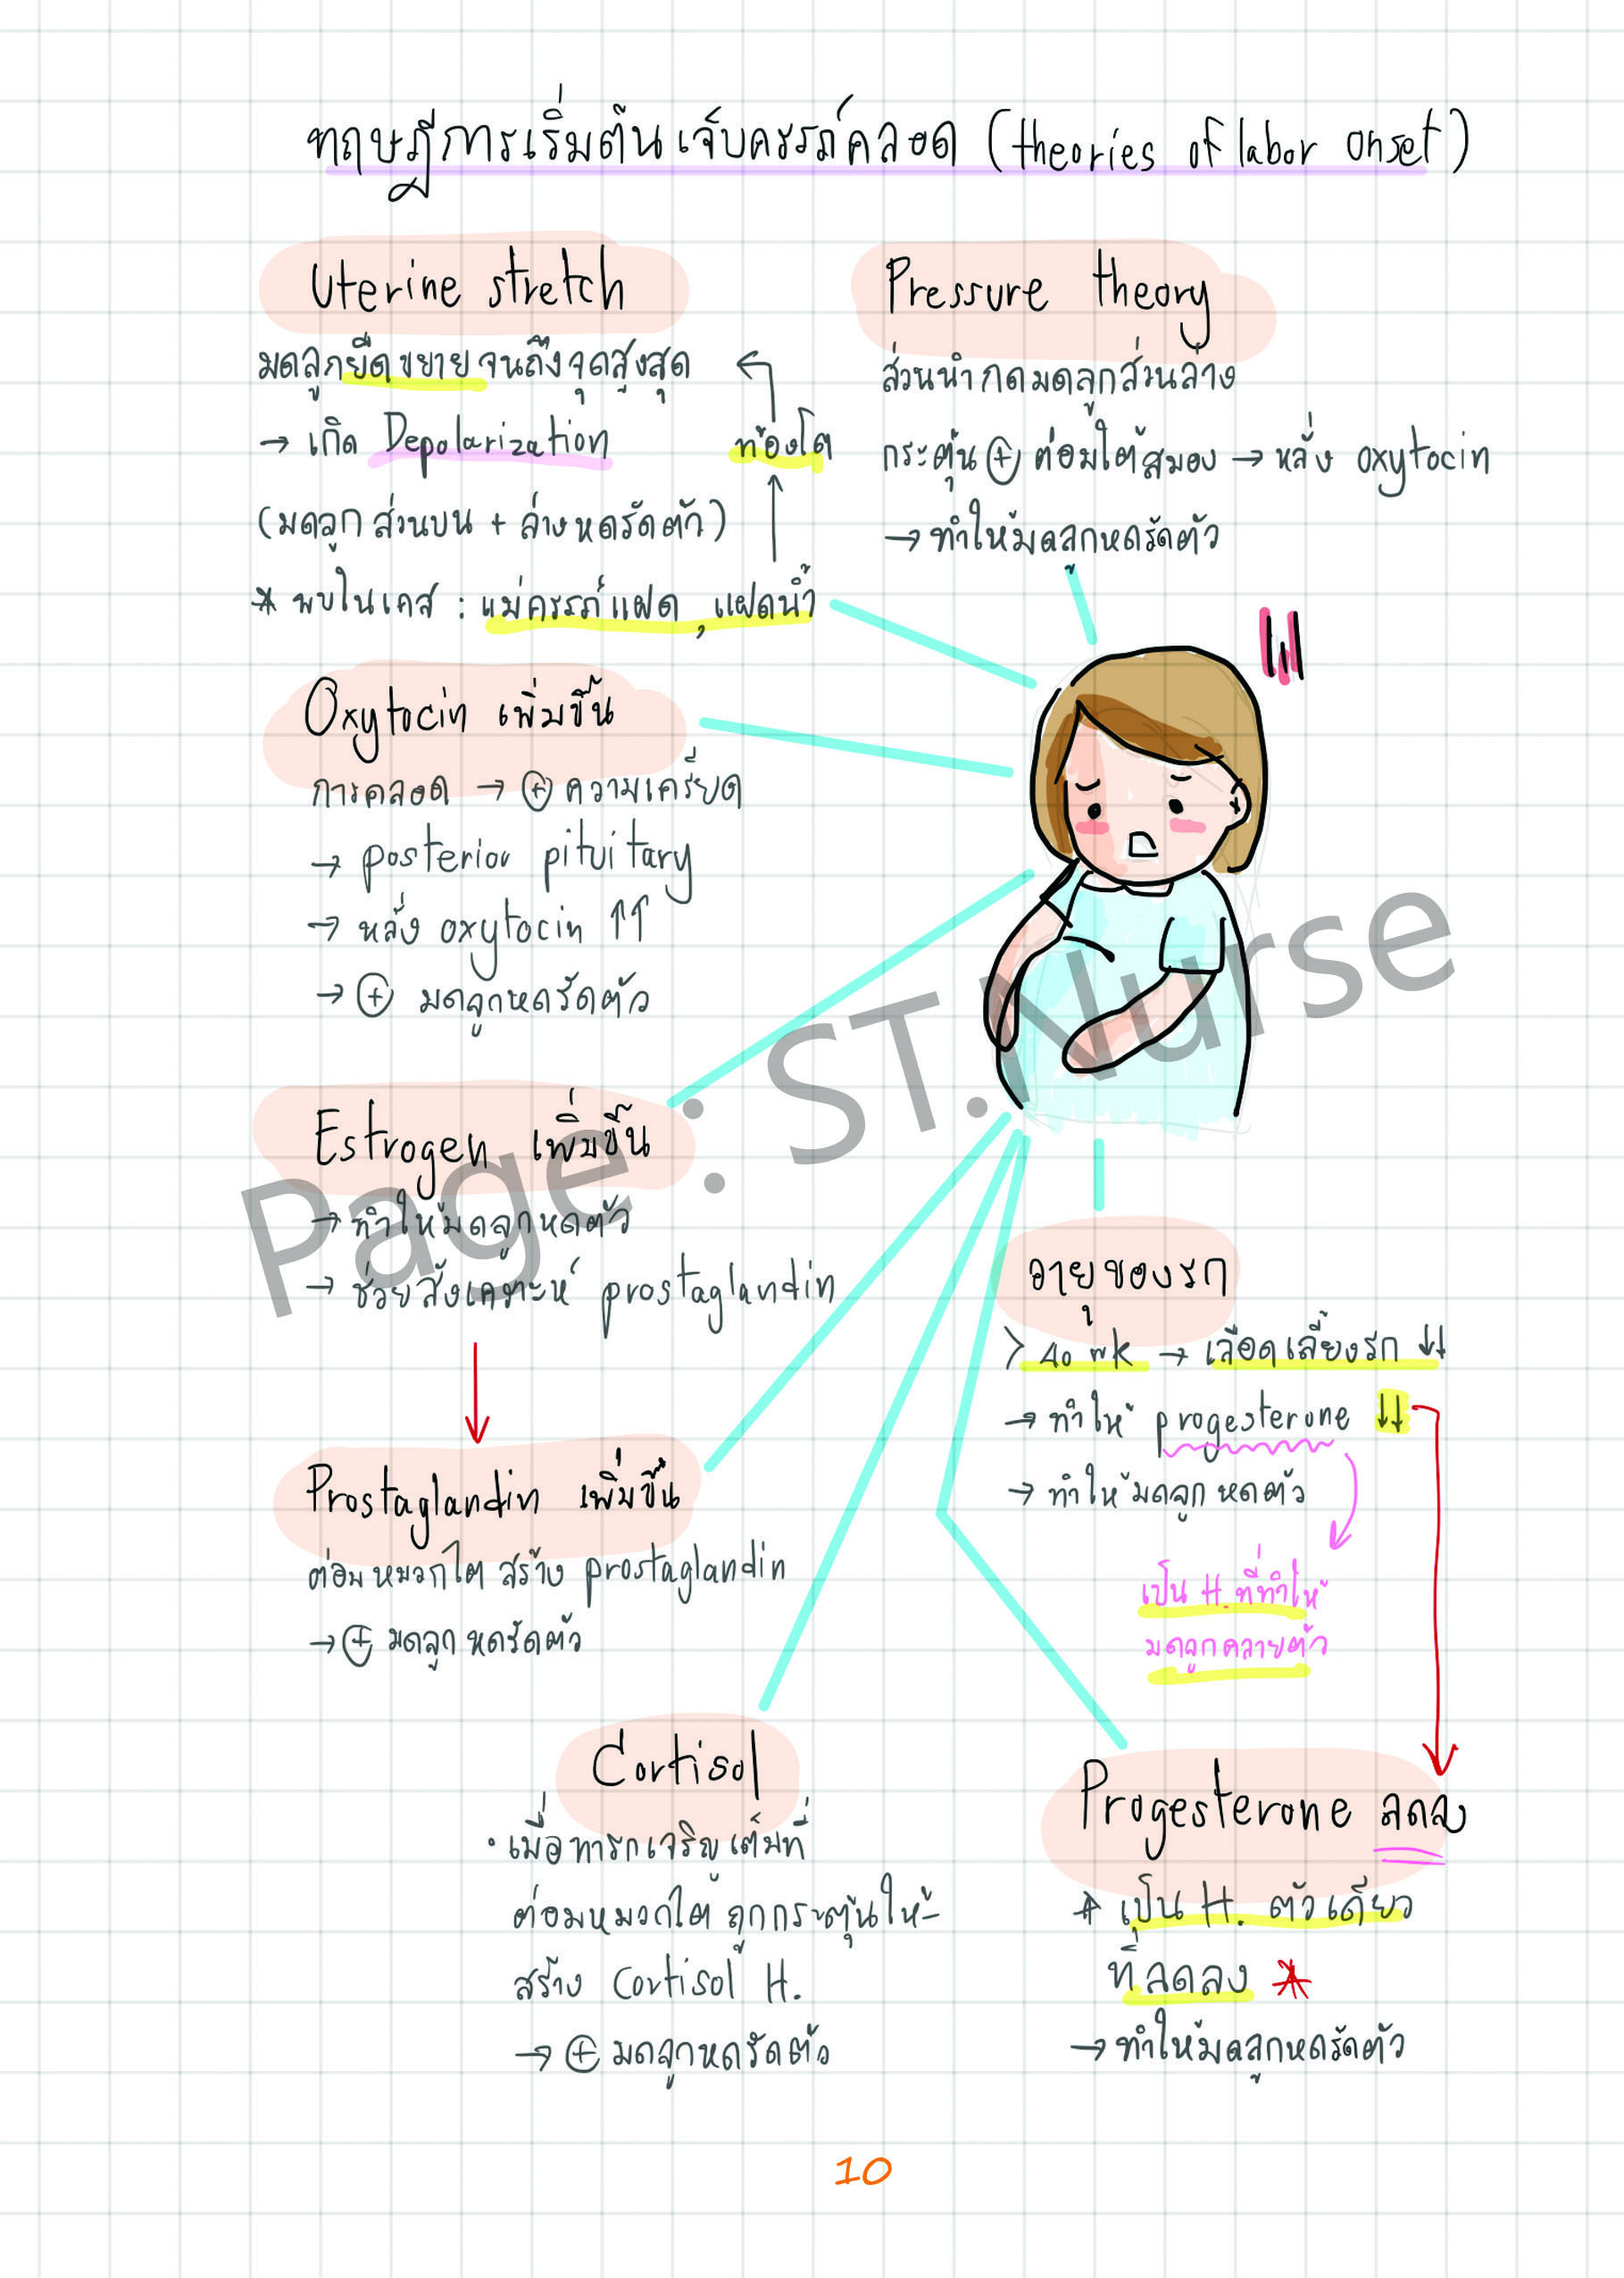 ทฤษฎีการเริ่มต้นเจ็บครรภ์คลอด (theories of labor onset)
Uterine stretch
มดลูกยืดขยายจนถึงจุดสูงสุด
→ เกิด Depolarization
ท้องโต
(มดลูกส่วนบน + ล่างหดรัดตัว)
* พบในเคส : แม่ครรภ์แฝด, แฝดน้ำ
Pressure theory
ส่วนนำกดมดลูกส่วนล่าง
กระตุ้น ⊕ ต่อมใต้สมอง → หลั่ง oxytocin
→ ทำให้มดลูกหดรัดตัว
Oxytocin เพิ่มขึ้น
การคลอด → ⊕ ความเครียด
→ posterior pituitary
→ หลั่ง oxytocin ↑↑
→ ⊕ มดลูกหดรัดตัว
Estrogen เพิ่มขึ้น
→ ทำให้มดลูกหดตัว
→ ช่วยสังเคราะห์ prostaglandin
Prostaglandin เพิ่มขึ้น
ต่อมหมวกไต สร้าง prostaglandin
→ ⊕ มดลูกหดรัดตัว
อายุของรก
> 40 wk → เลือดเลี้ยงรก ↓↓
→ ทำให้ progesterone ↓↓
→ ทำให้มดลูกหดตัว
เป็น H. ที่ทำให้
มดลูกคลายตัว
Cortisol
• เมื่อทารกเจริญเต็มที่
ต่อมหมวกไต ถูกกระตุ้นให้-
สร้าง Cortisol H.
→ ⊕ มดลูกหดรัดตัว
Progesterone ลดลง
* เป็น H. ตัวเดียว
ที่ลดลง *
→ ทำให้มดลูกหดรัดตัว
Page : ST.Nurse
10